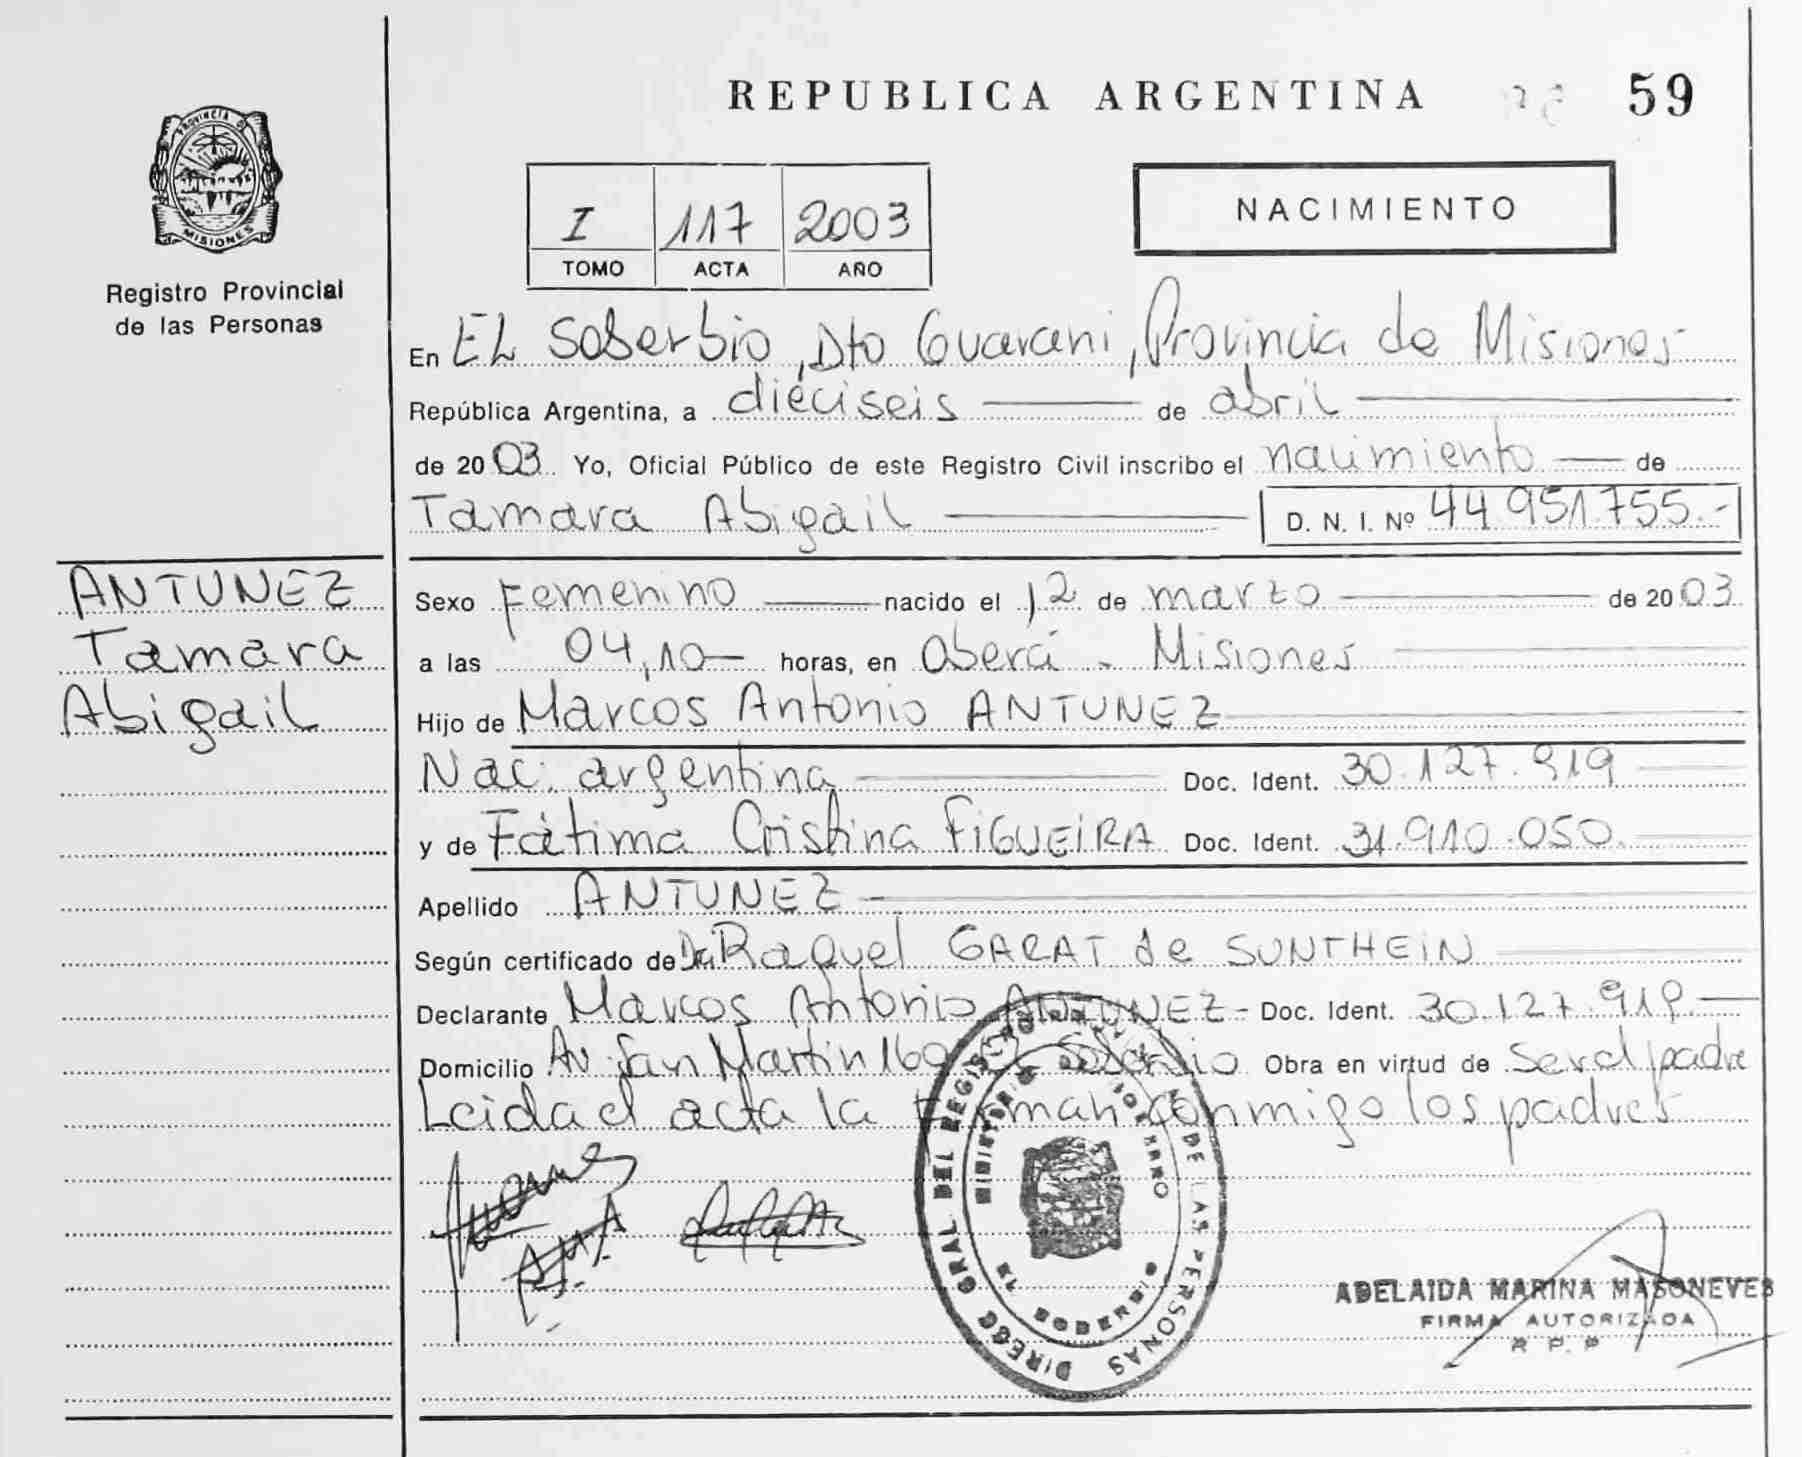 REPUBLICA ARGENTINA 59
PROVINCIA DE
MISIONES
Registro Provincial
de las Personas
I 117 2003
TOMO ACTA AÑO
NACIMIENTO
En EL Soberbio, Dto Guarani, Provincia de Misiones
República Argentina, a dieciseis de abril
de 2003 Yo, Oficial Público de este Registro Civil inscribo el nacimiento de
Tamara Abigail D. N. I. Nº 44.951.755.-
ANTUNEZ
Tamara
Abigail
Sexo Femenino nacido el 12 de marzo de 2003
a las 04,10 horas, en Oberá - Misiones
Hijo de Marcos Antonio ANTUNEZ
Nac. argentina Doc. Ident. 30.127.919
y de Fátima Cristina FIGUEIRA Doc. Ident. 31.910.050.
Apellido ANTUNEZ
Según certificado de Dra Raquel GARAT de SUNTHEIN
Declarante Marcos Antonio ANTUNEZ - Doc. Ident. 30.127.919.
Domicilio Av. San Martin 169 Soberbio Obra en virtud de ser el padre
Leida el acta la Firman conmigo los padres
DIRECC GRAL DEL REGISTRO DE LAS PERSONAS
MINISTERIO DE GOBIERNO
EL SOBERBIO
ADELAIDA MARINA MASONEVES
FIRMA AUTORIZADA
R. P. P